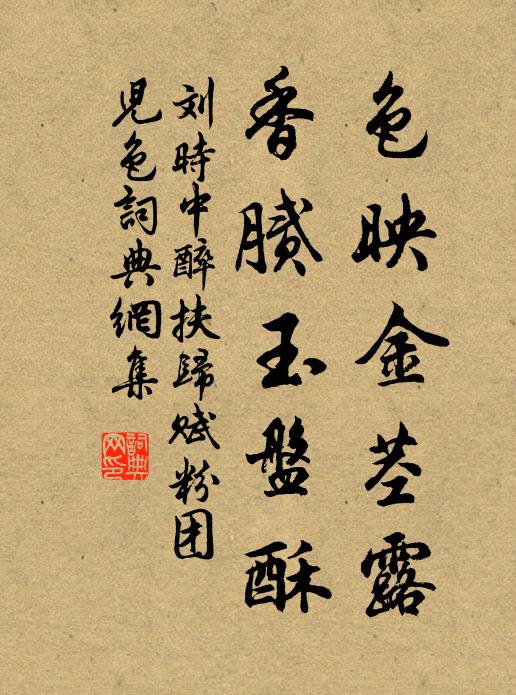 色映金茎露
香膩玉盤酥
刘時中醉扶歸赋粉团
児色詞典網集
詞典网印